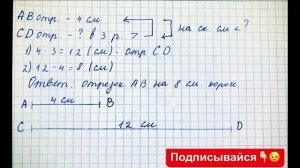 АВ отр. - 4 см
CD отр. - ? в 3 р. > на ск. см < ?
1) 4·3=12 (см) - отр. CD
2) 12-4=8 (см)
Ответ: отрезок АВ на 8 см короче
4 см
А В
12 см
С D
Подписывайся